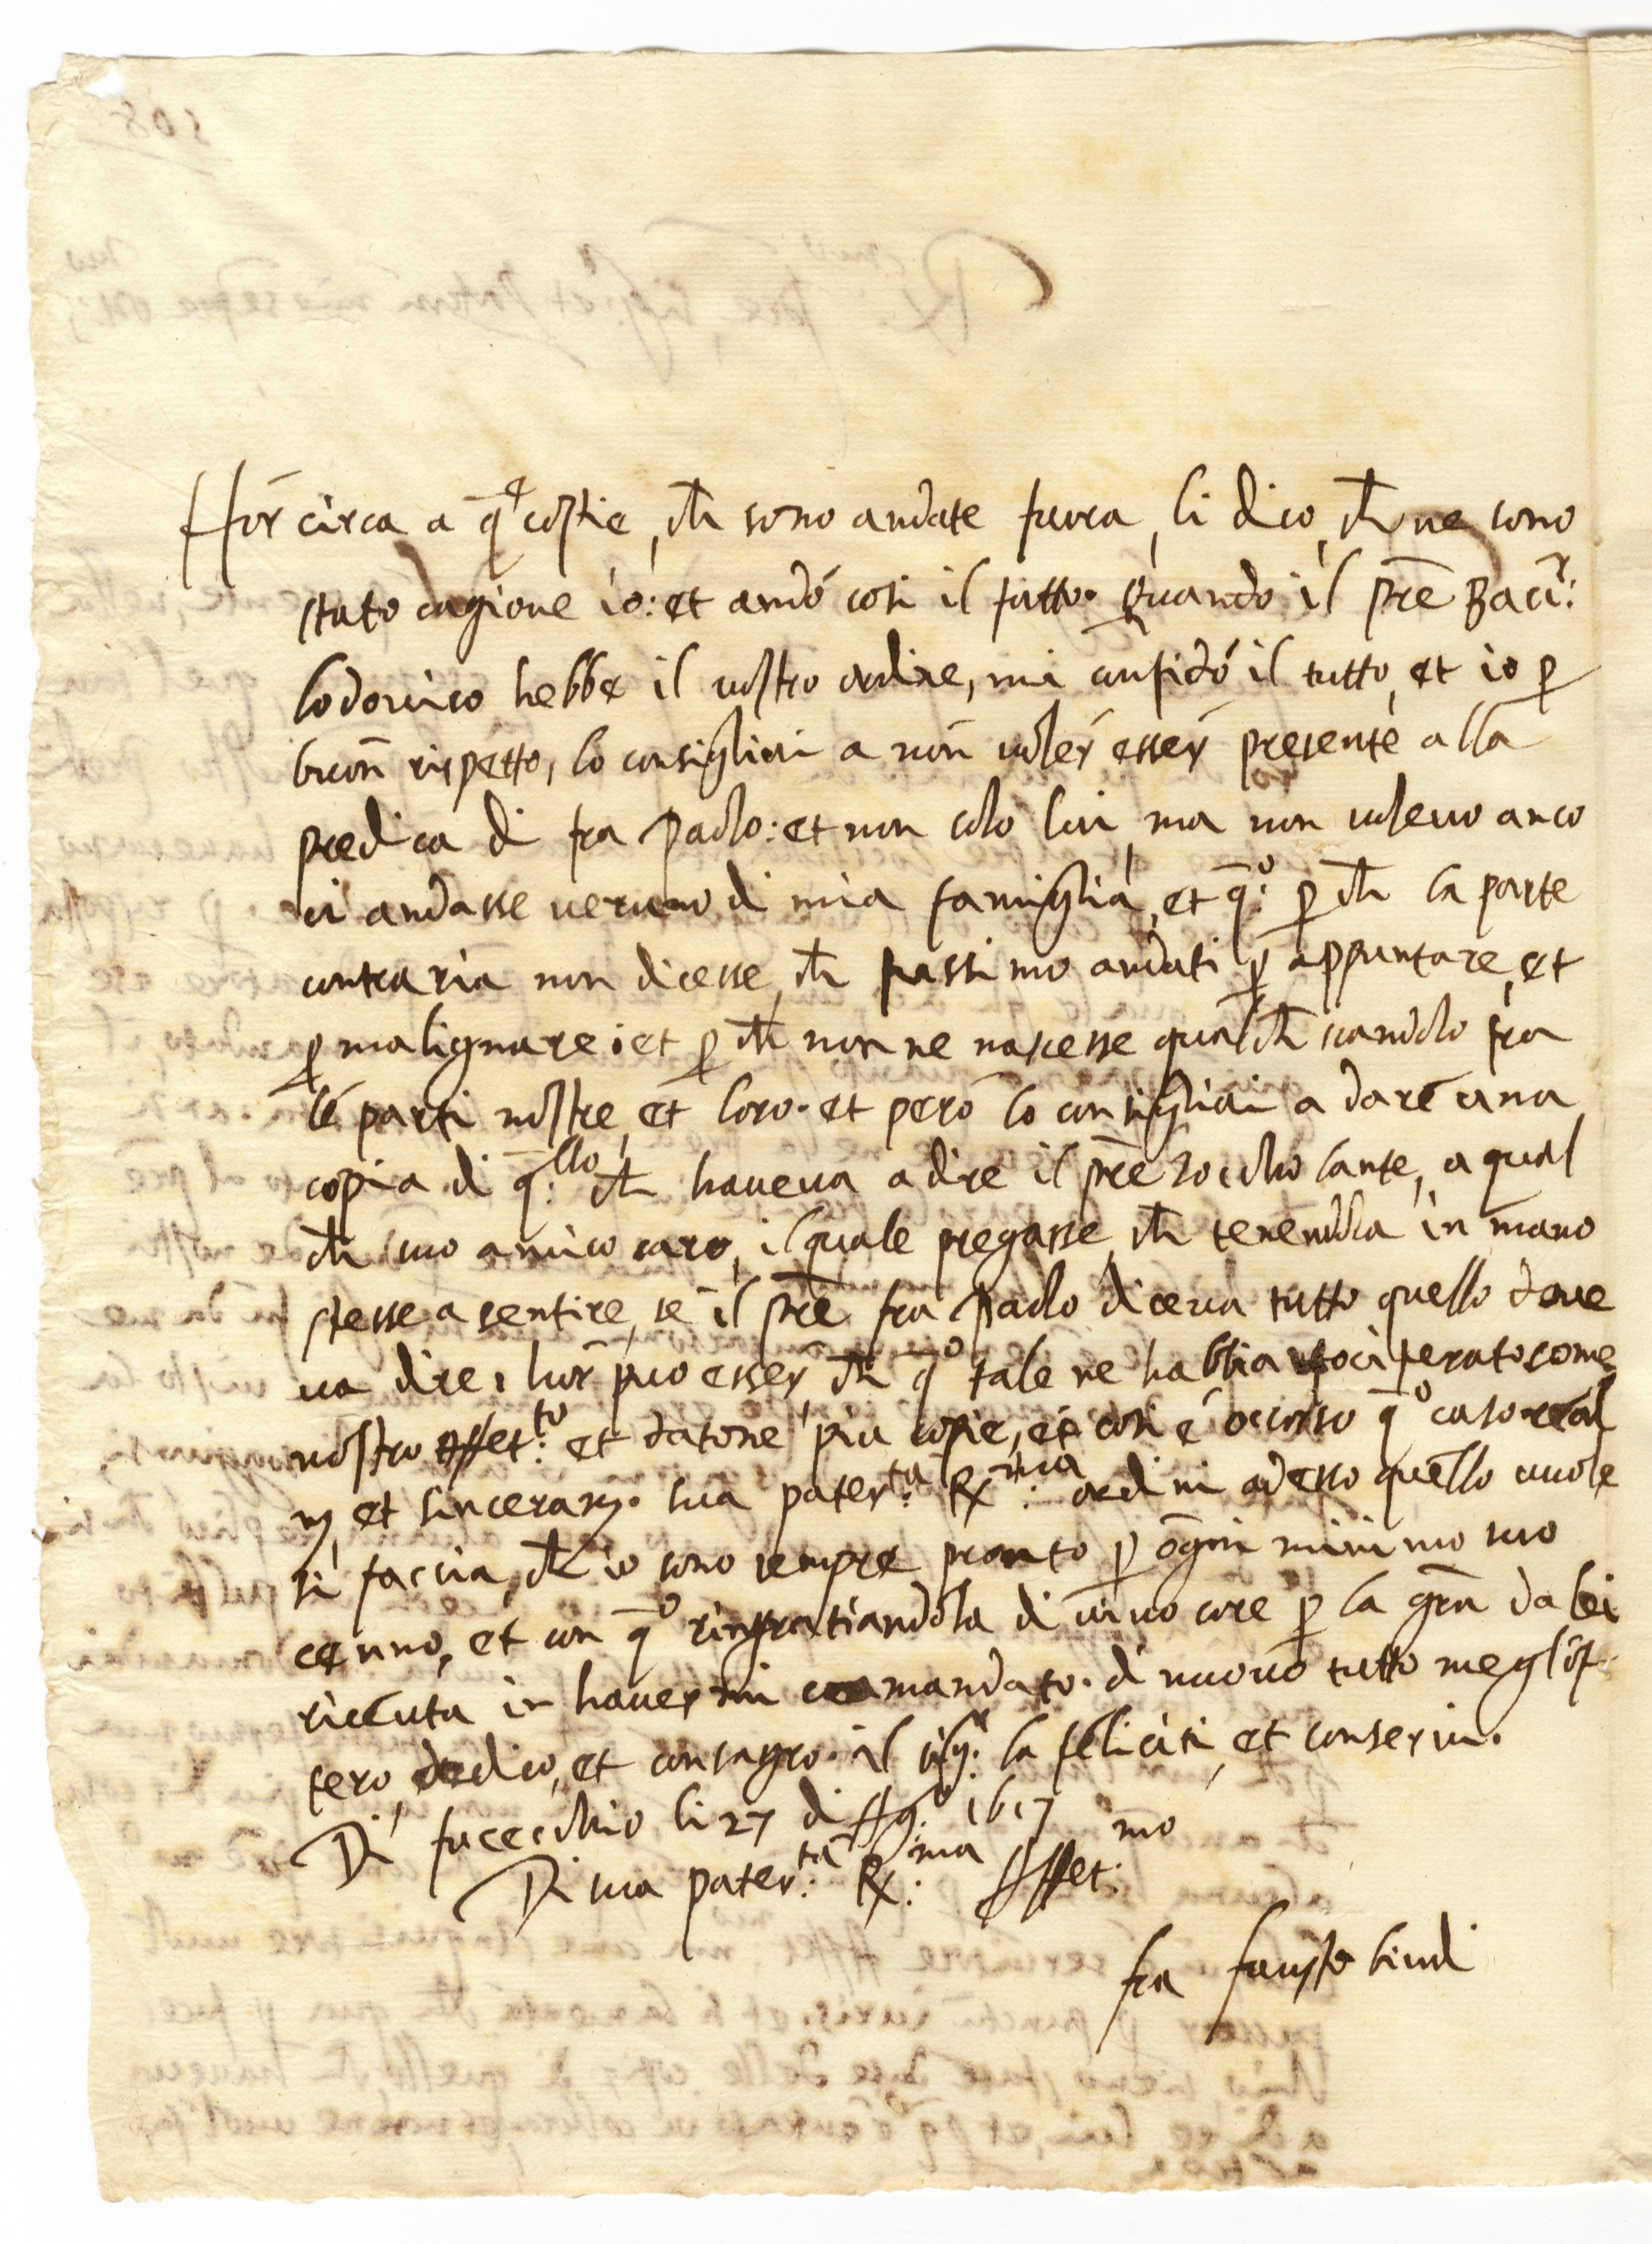 Hor circa a q̄e copie, ch̄ sono andate fuora, li dico, ch̄ ne sono
stato cagione io: et andó cosi il fatto. Quando il p̄re Bacr:
lodovico hebbe il vostro ordine, mi confidó il tutto, et io p̱
buon̄ rispetto, lo consigliai a non̄ voler esser presente alla
predica di fra Paolo: et non solo lui, ma non volevo anco
ci andasse veruno di mia famiglia, et q̄o: p̱ ch̄ la parte
contraria non dicesse, ch̄ fussimo andati p̱ appuntare, et
p̱ malignare: et p̱ ch̄ non ne nascesse qualch̄ scandolo fra
le parti nostre, et loro. et peró lo consigliai a dare una
copia di q̄:llo ch̄ haveva a dire il p̄re Zoccholante, a qual
ch̄ suo amico caro, il quale pregasse, ch̄ tenendola in mano
stesse a sentire, se il p̄re fra Paolo diceva tutto quello deve
va dire. hor può esser, ch̄ q̄o tale ne habbia vociferato come
nostro Affet:to et datone più copie, et cosi é occorso q̄o caso real
m, et sinceram. sua pater:ta R:ma ordini adesso quello vuole
si faccia, ch̄ io sono sempre pronto p̱ ogni minimo suo
cenno, et con q̄o ringratiandola di vivo core p̱ la gr̄a da lei
riceuta in havermi comandato. di nuovo tutto me gl'of
fero, dedico, et consagro. il sigr: la feliciti, et conservi.
Di fucecchio li 27 di Ago: 1617
Di sua pater:ta R:ma Affet:mo
fra fausto lindi